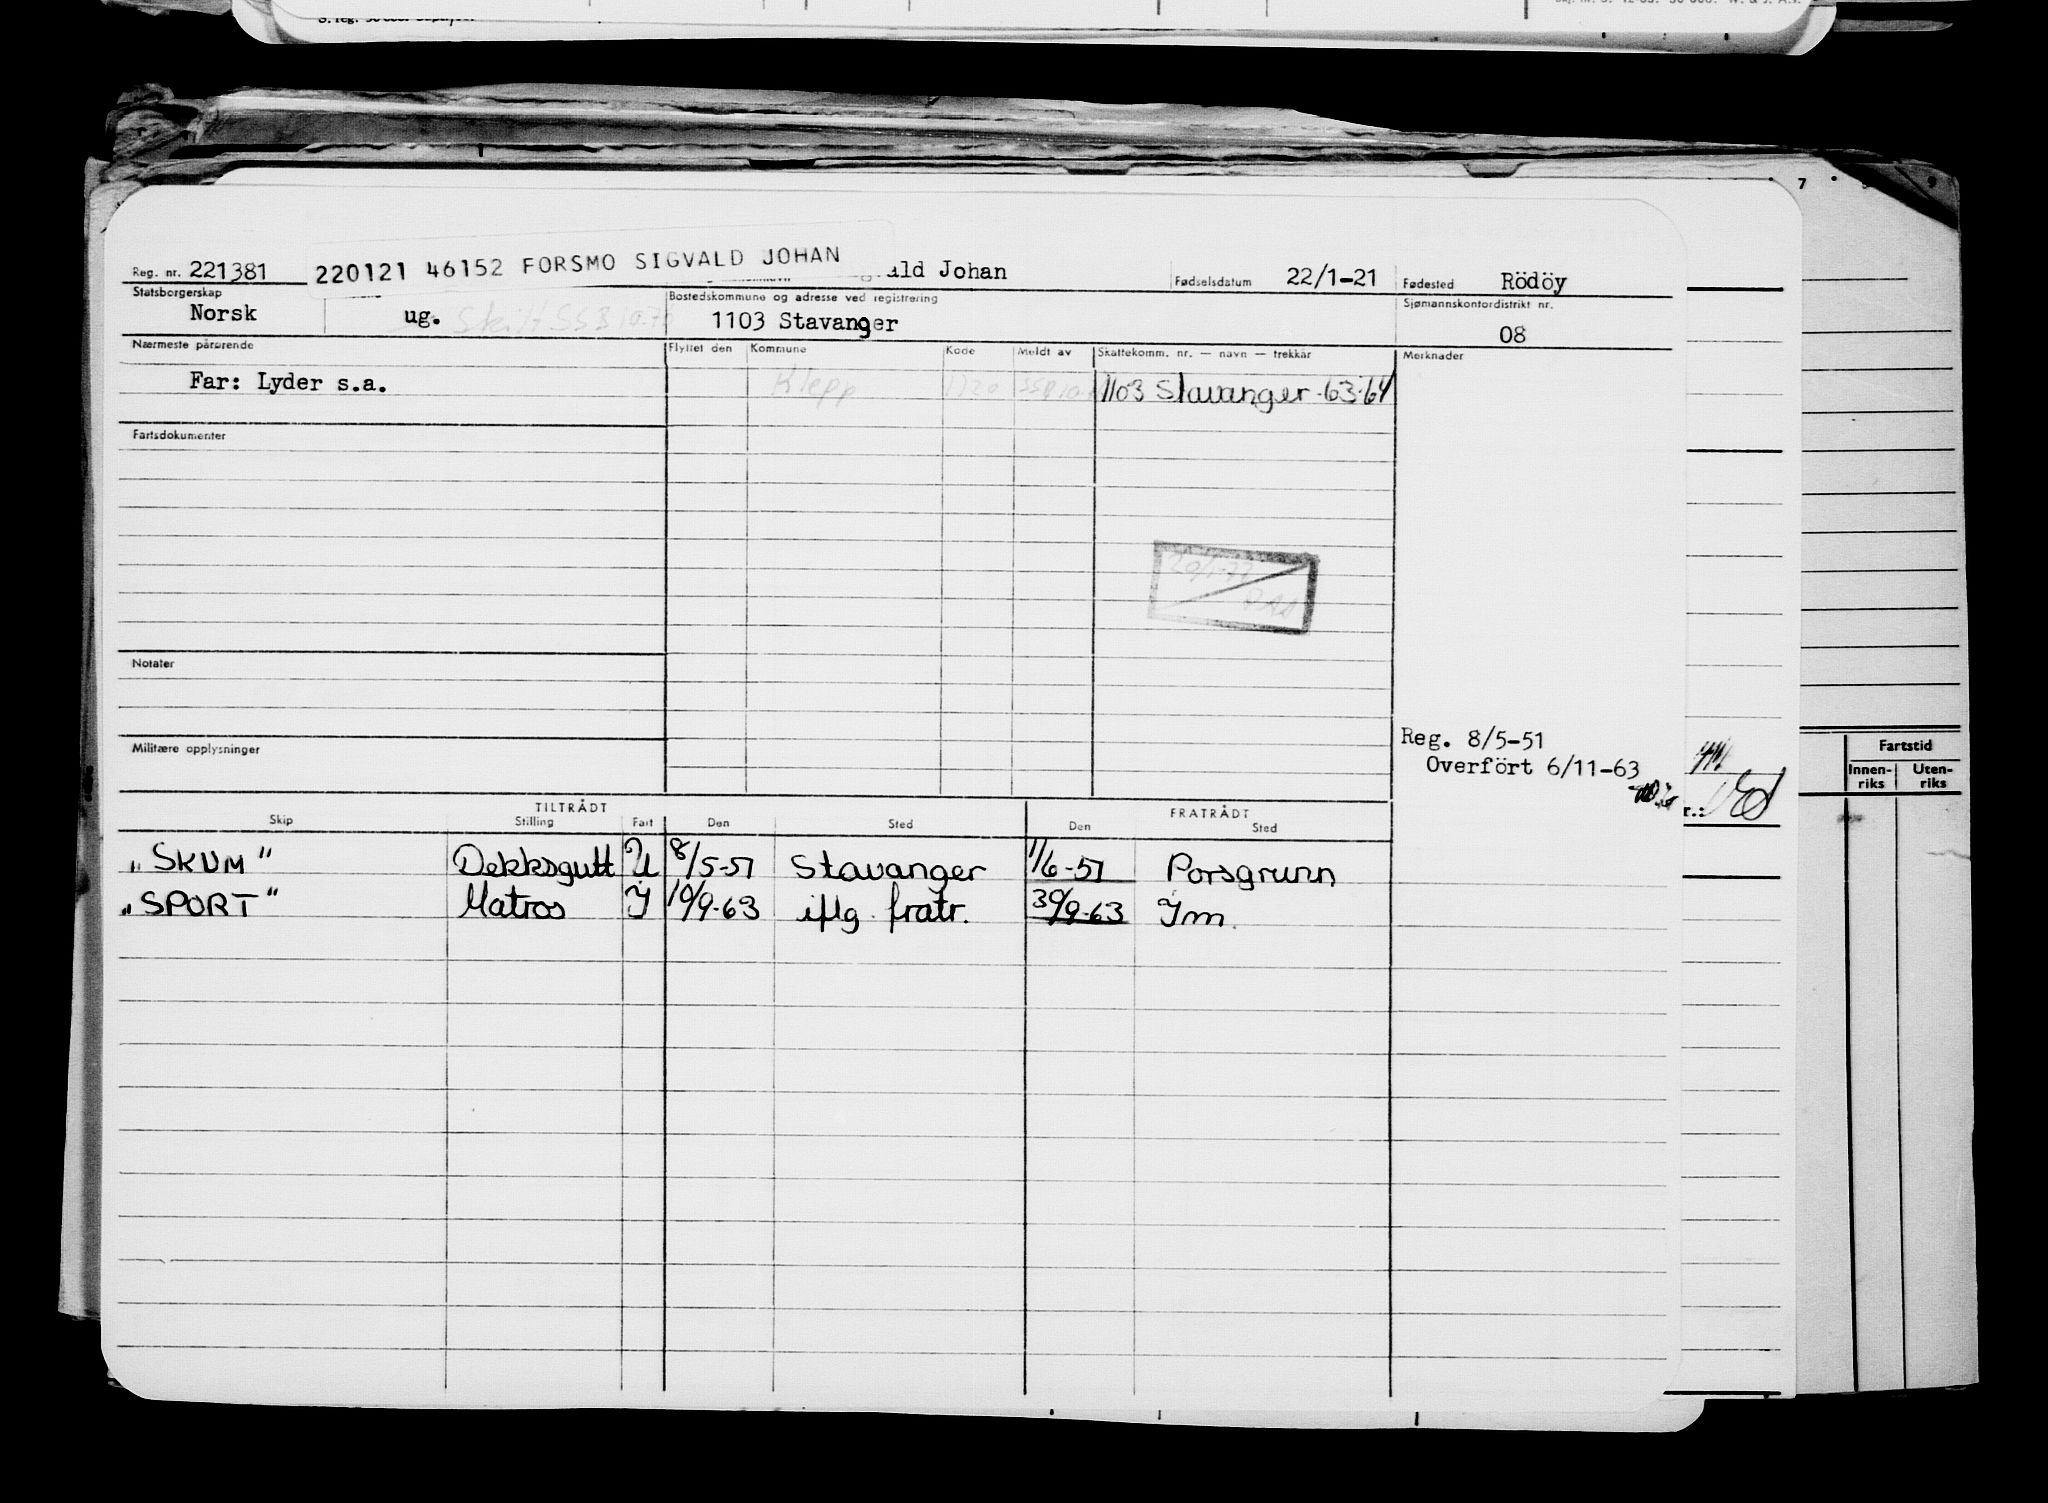 Reg. nr. 221381
220121 46152 FORSMO SIGVALD JOHAN
ald Johan
Fødselsdatum 22/1-21
Fødested Rödöy
Statsborgerskap
Norsk
ug.
Skilt SSB 10.70
Bostedskommune og adresse ved registrering
1103 Stavanger
Sjømannskontordistrikt nr.
08
Nærmeste pårørende
Far: Lyder s.a.
Flyttet den Kommune Kode Meldt av Skattekomm. nr. — navn — trekkår
Klepp 1120
1103 Stavanger -63-64
Merknader
Fartsdokumenter
Notater
Militære opplysninger
Reg. 8/5-51
Overfört 6/11-63
TILTRÅDT
FRATRÅDT
Skip Stilling Fart Den Sted Den Sted
„SKUM" Dekksgutt U 8/5-51 Stavanger 1/6-51 Porsgrunn
„SPORT" Matros I 10/9-63 iflg. fratr. 30/9-63 Im.
7
9
Fartstid
Innen-
riks
Uten-
riks